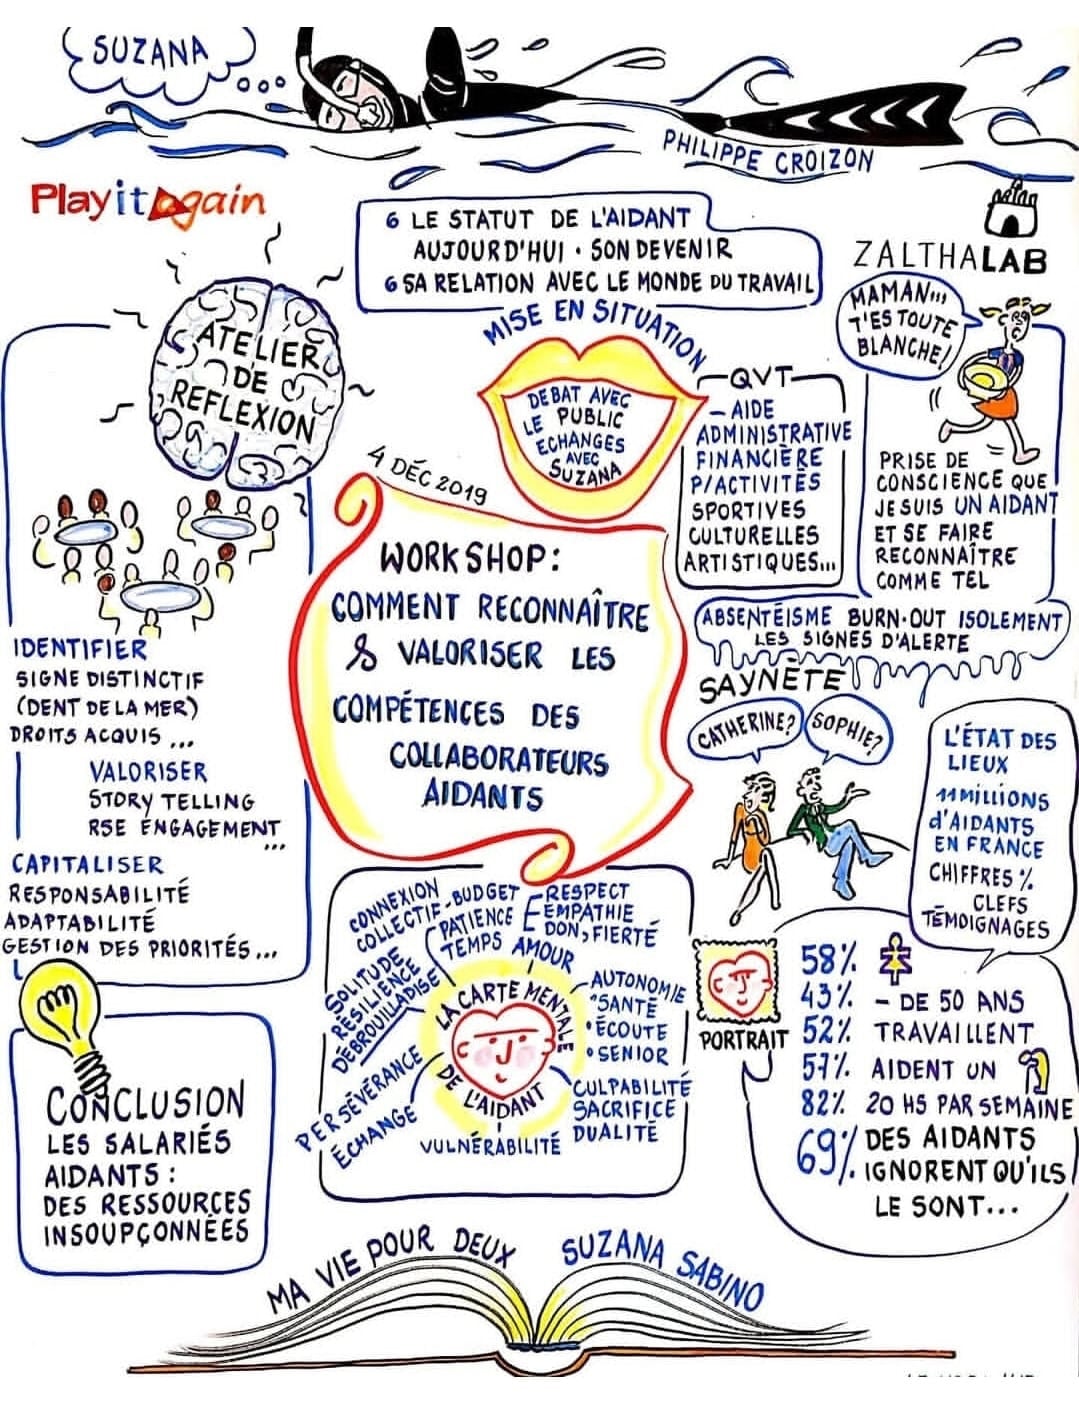 SUZANA
PHILIPPE CROIZON
Playitagain
6 LE STATUT DE L'AIDANT
AUJOURD'HUI • SON DEVENIR
6 SA RELATION AVEC LE MONDE DU TRAVAIL
ZALTHALAB
MAMAN...
T'ES TOUTE
BLANCHE!
ATELIER
DE
REFLEXION
MISE EN SITUATION
DEBAT AVEC
LE PUBLIC
ECHANGES
AVEC
SUZANA
QVT
- AIDE
ADMINISTRATIVE
FINANCIÈRE
P/ACTIVITÉS
SPORTIVES
CULTURELLES
ARTISTIQUES...
PRISE DE
CONSCIENCE QUE
JE SUIS UN AIDANT
ET SE FAIRE
RECONNAÎTRE
COMME TEL
4 DÉC 2019
WORKSHOP:
COMMENT RECONNAÎTRE
& VALORISER LES
COMPÉTENCES DES
COLLABORATEURS
AIDANTS
ABSENTÉISME BURN-OUT ISOLEMENT
LES SIGNES D'ALERTE
SAYNÈTE
CATHERINE?
SOPHIE?
IDENTIFIER
SIGNE DISTINCTIF
(DENT DE LA MER)
DROITS ACQUIS...
VALORISER
STORY TELLING
RSE ENGAGEMENT
...
CAPITALISER
RESPONSABILITÉ
ADAPTABILITÉ
GESTION DES PRIORITÉS...
L'ÉTAT DES
LIEUX
11 MILLIONS
d'AIDANTS
EN FRANCE
CHIFFRES %
CLEFS
TÉMOIGNAGES
CONNEXION
COLLECTIF
- BUDGET
PATIENCE
TEMPS
RESPECT
EMPATHIE
DON, FIERTÉ
AMOUR
SOLITUDE
RÉSILIENCE
DÉBROUILLADISE
LA CARTE MENTALE
DE L'AIDANT
AUTONOMIE
SANTÉ
ÉCOUTE
SENIOR
CULPABILITÉ
SACRIFICE
DUALITÉ
PERSÉVÉRANCE
ÉCHANGE
VULNÉRABILITÉ
PORTRAIT
58%
43% - DE 50 ANS
52% TRAVAILLENT
57% AIDENT UN
82% 20 HS PAR SEMAINE
69% DES AIDANTS
IGNORENT QU'ILS
LE SONT...
CONCLUSION
LES SALARIÉS
AIDANTS :
DES RESSOURCES
INSOUPÇONNÉES
MA VIE POUR DEUX
SUZANA SABINO